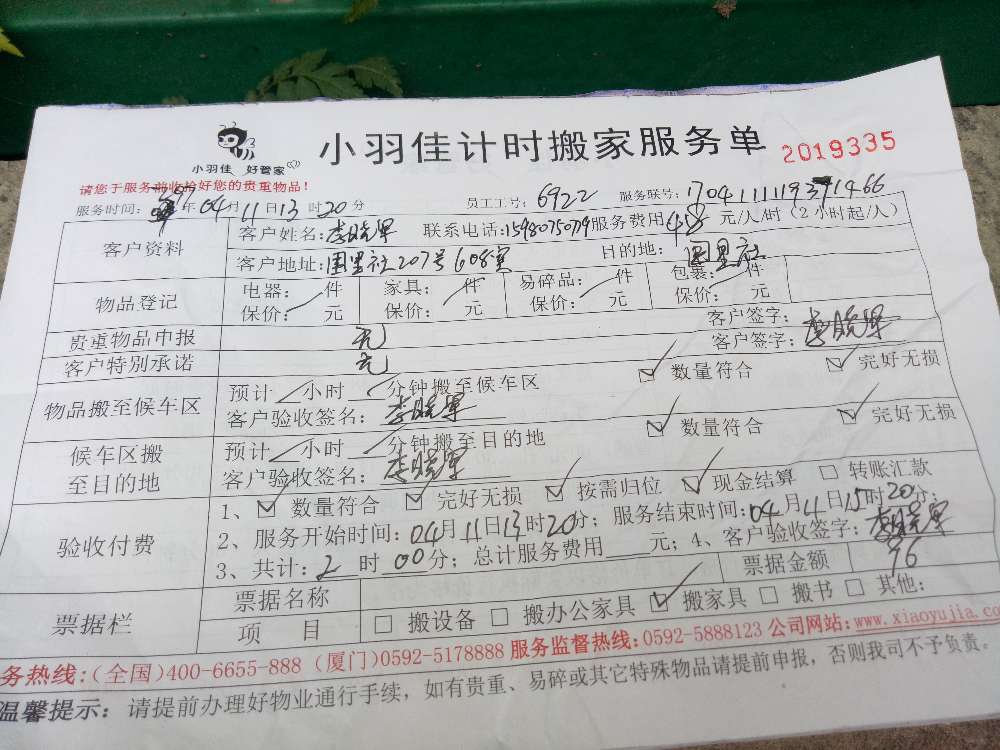 小羽佳 好管家
小羽佳计时搬家服务单 2019335
请您于服务前收拾好您的贵重物品!
服务时间: 年04月11日13时20分 员工工号: 6922 服务联号:
客户资料 客户姓名:李晓军 联系电话: 服务费用48元/人/时(2小时起/人)
客户地址:围里社207号608室 目的地: 围里社
物品登记 电器: 件 家具: 件 易碎品: 件 包裹: 件
保价: 元 保价: 元 保价: 元 保价: 元
贵重物品申报 无 客户签字:
客户特别承诺 无 客户签字:李晓军
物品搬至候车区 预计 小时 分钟搬至候车区 数量符合 完好无损
客户验收签名:李晓军
候车区搬至目的地 预计 小时 分钟搬至目的地 数量符合 完好无损
客户验收签名:李晓军
验收付费 1、 数量符合 完好无损 按需归位 现金结算 转账汇款
2、服务开始时间:04月11日13时20分; 服务结束时间:04月11日15时20分;
3、共计:2时00分; 总计服务费用 元; 4、客户验收签字:李晓军
票据栏 票据名称 票据金额 96
项 目 搬设备 搬办公家具 搬家具 搬书 其他:
务热线:(全国)400-6655-888 (厦门)0592-5178888 服务监督热线:0592-5888123 公司网站:www.xiaoyujia.co
温馨提示: 请提前办理好物业通行手续, 如有贵重、易碎或其它特殊物品请提前申报, 否则我司不予负责。